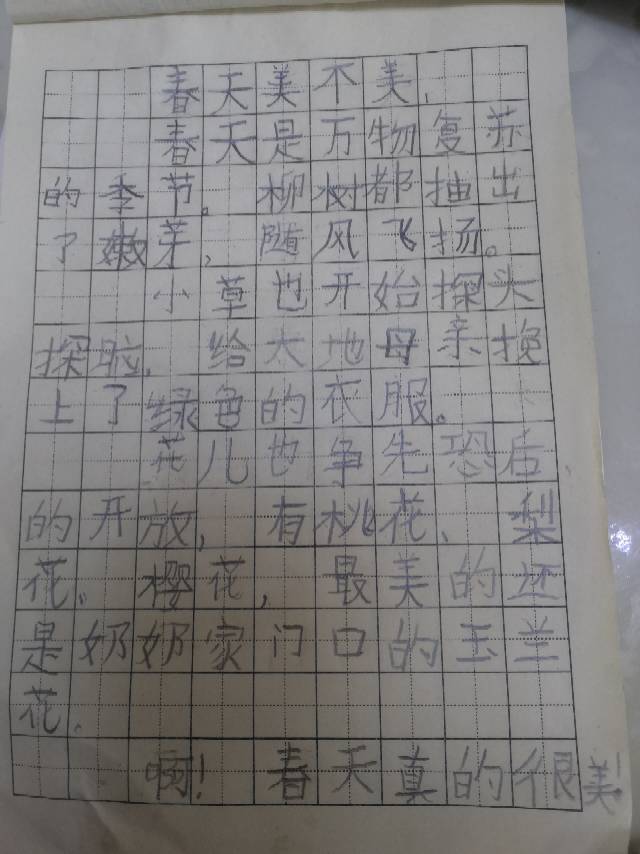 春天美不美、
春天是万物复苏
的季节。柳树都抽出
了嫩芽，随风飞扬。
小草也开始探头
探脑，给大地母亲换
上了绿色的衣服。
花儿也争先恐后、
的开放，有桃花、梨
花、樱花，最美的还
是奶奶家门口的玉兰
花.
啊！春天真的很美！